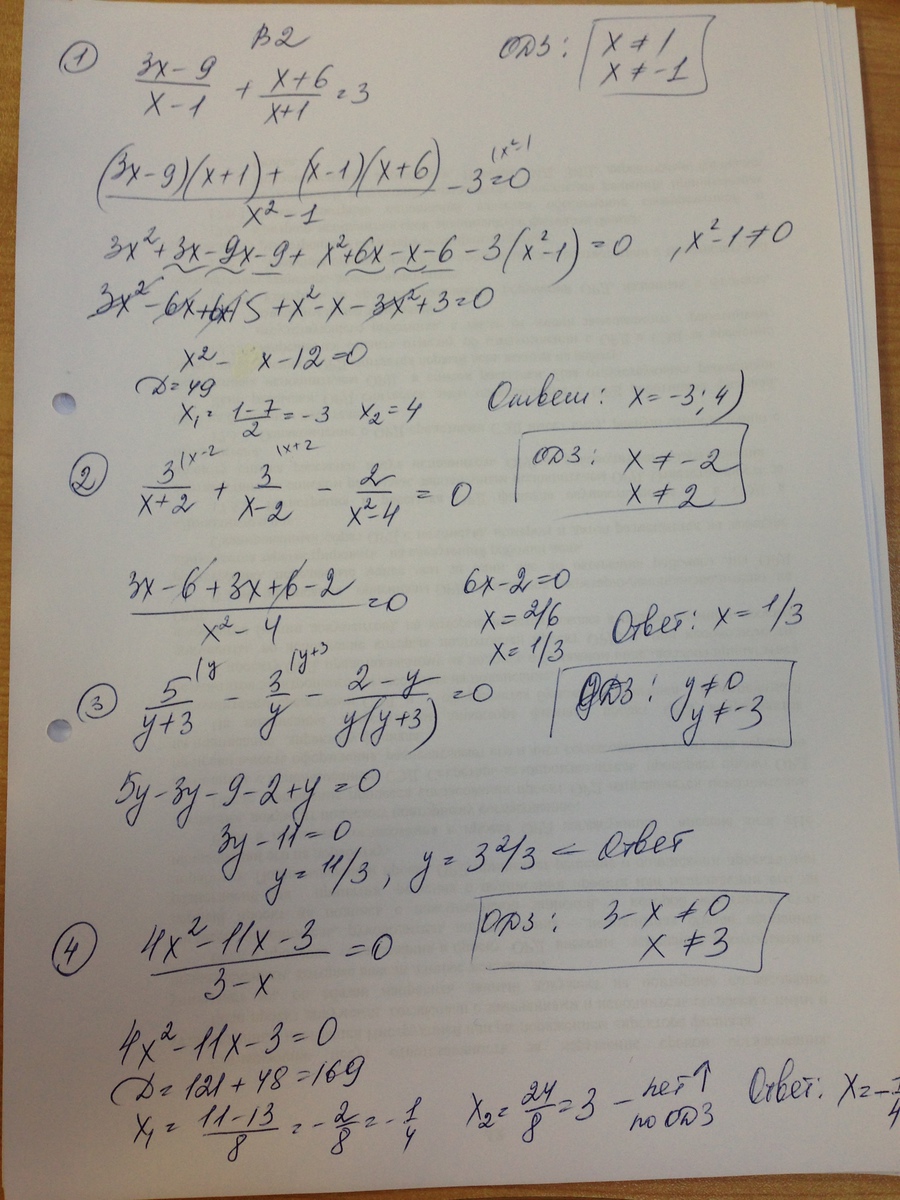 В2
① (3x-9)/(x-1) + (x+6)/(x+1) = 3 ОДЗ: x ≠ 1
x ≠ -1
((3x-9)(x+1) + (x-1)(x+6))/(x²-1) - 3 |x²-1 = 0
3x²+3x-9x-9+x²+6x-x-6-3(x²-1)=0 , x²-1≠0
3x²-6x+6x-15+x²-x-3x²+3=0
x²-x-12=0
D=49
x₁ = (1-7)/2 = -3 x₂=4 Ответ: x=-3; 4)
② 3/(x+2) |x-2 + 3/(x-2) |x+2 - 2/(x²-4) = 0 ОДЗ: x ≠ -2
x ≠ 2
(3x-6+3x+6-2)/(x²-4) = 0 6x-2=0
x=2/6
x=1/3 Ответ: x=1/3
③ 5/(y+3) |y - 3/y |y+3 - (2-y)/(y(y+3)) = 0 ОДЗ: y≠0
y≠-3
5y-3y-9-2+y=0
3y-11=0
y=11/3, y=3 2/3 ← Ответ
④ (4x²-11x-3)/(3-x) = 0 ОДЗ: 3-x≠0
x≠3
4x²-11x-3=0
D=121+48=169
x₁ = (11-13)/8 = -2/8 = -1/4 x₂ = 24/8 = 3 - нет ↑ по ОДЗ Ответ: x=-1/4